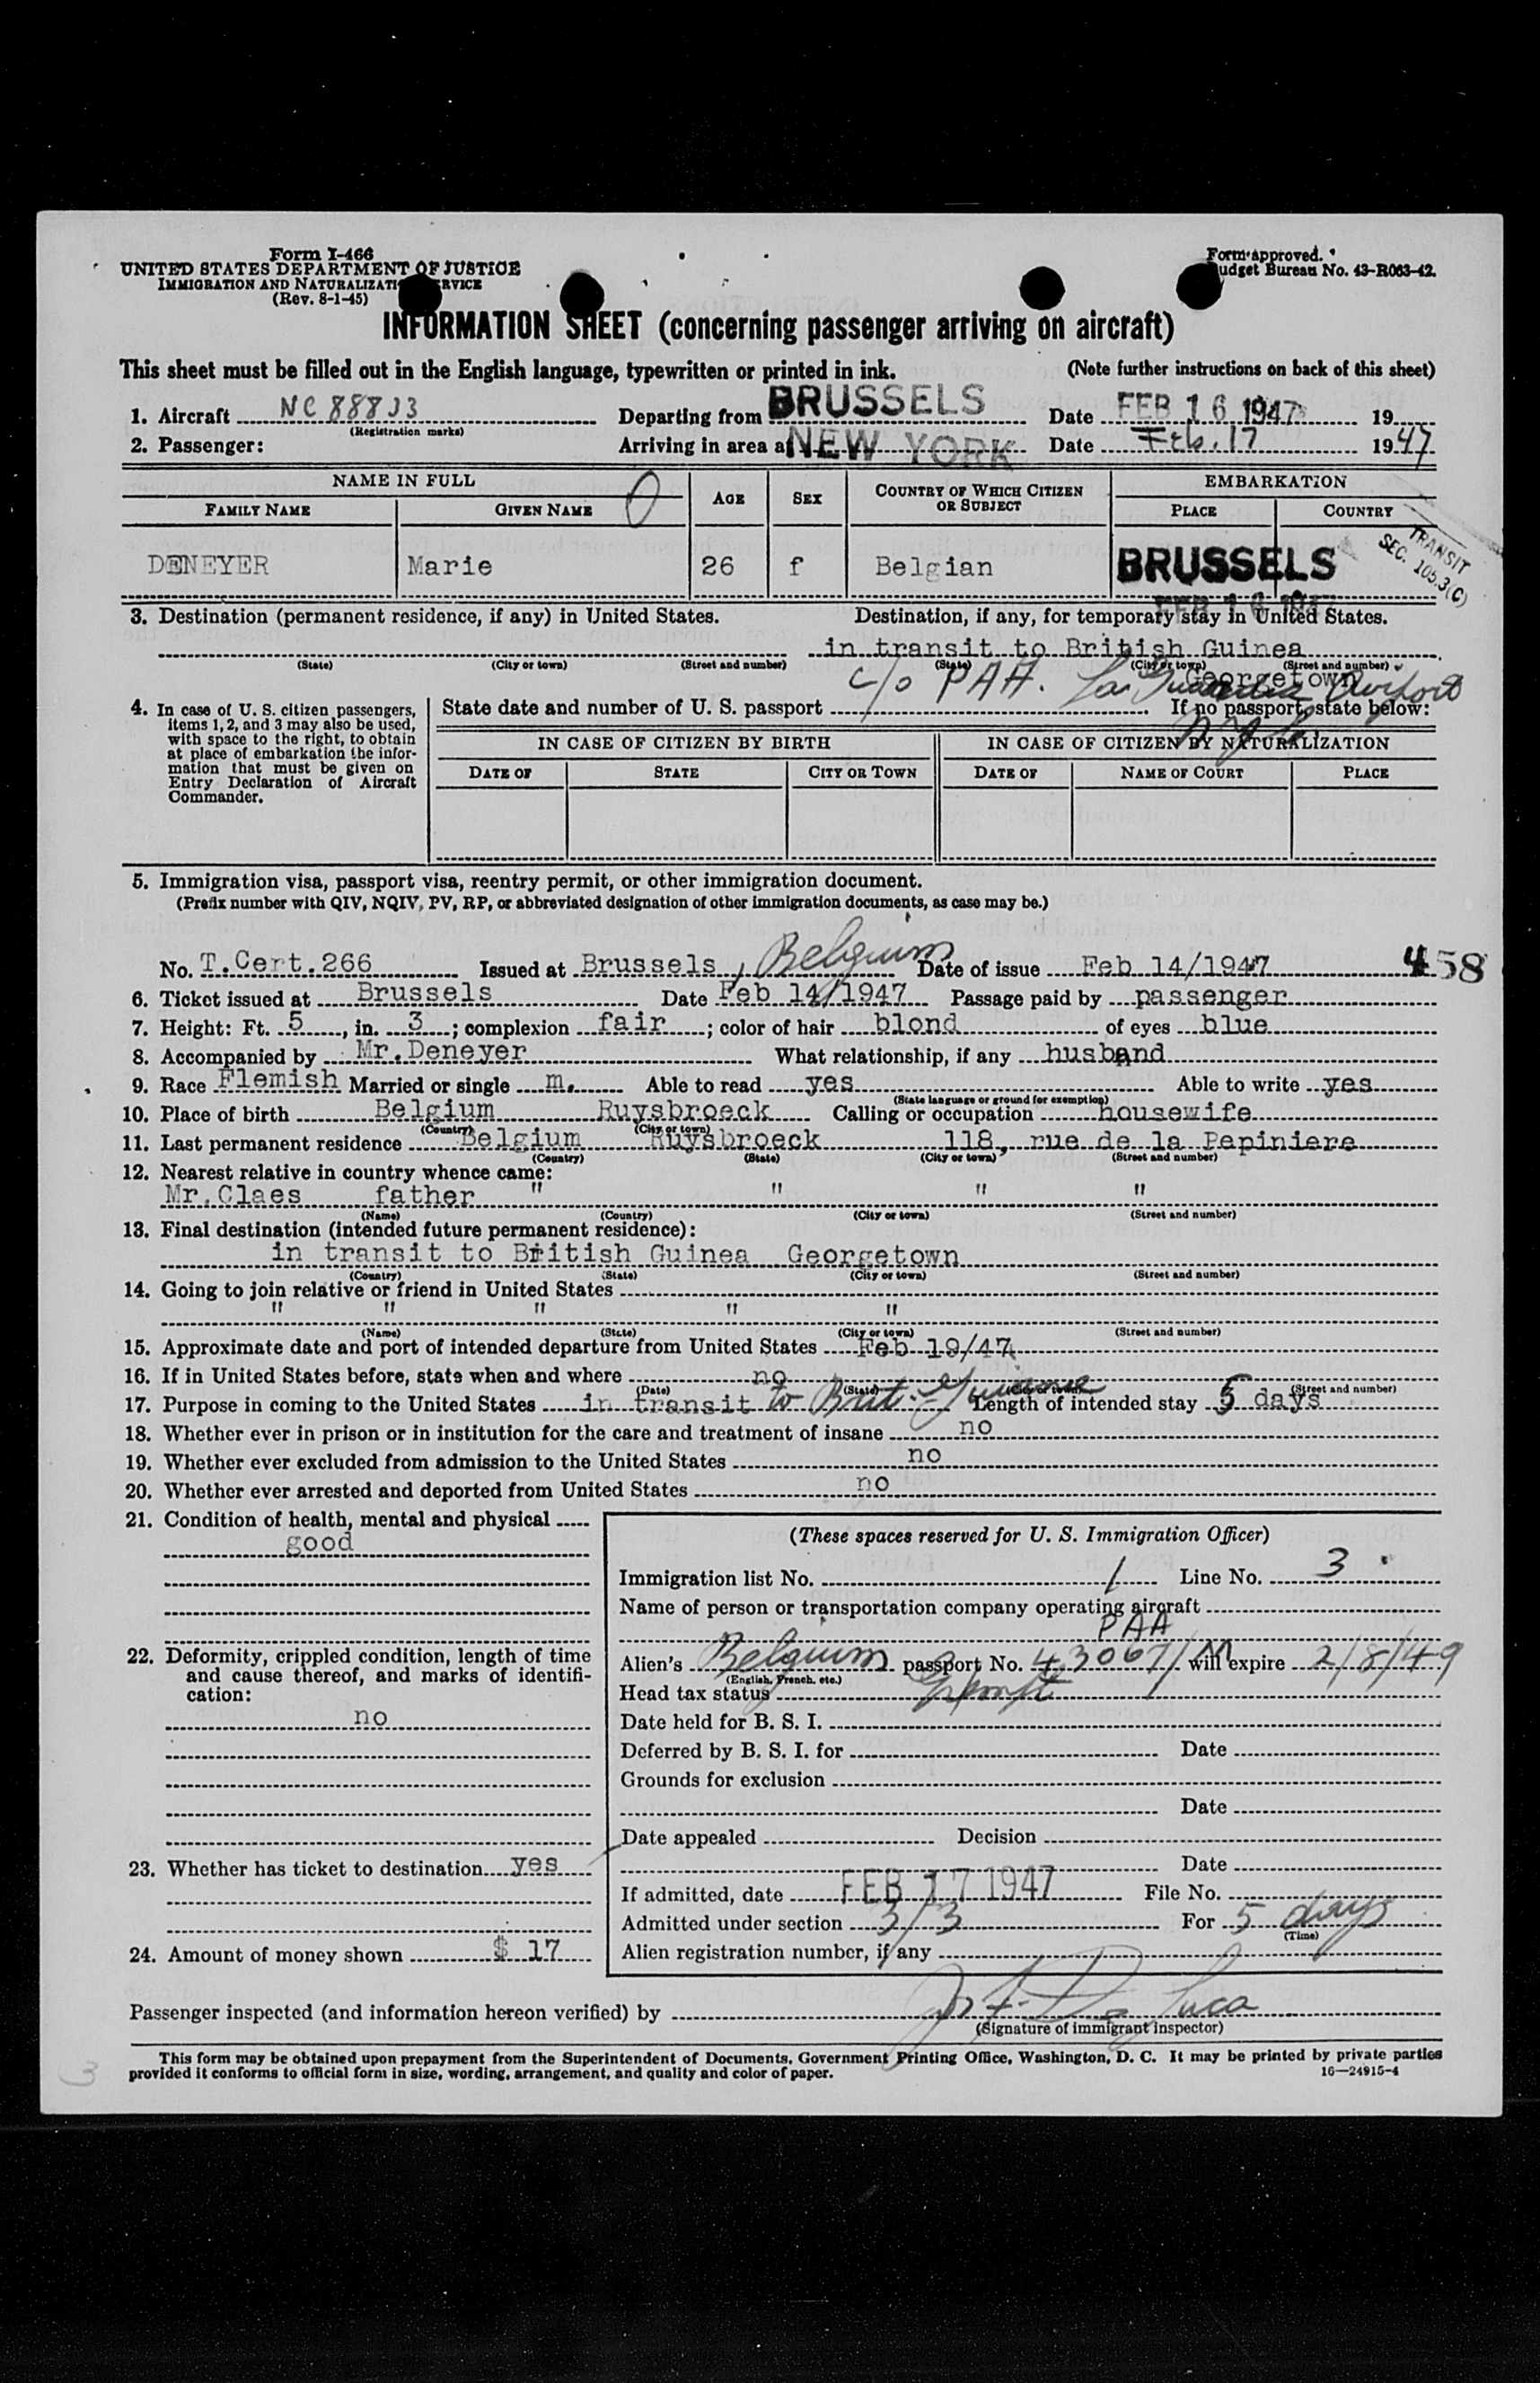 Form I-466
UNITED STATES DEPARTMENT OF JUSTICE
IMMIGRATION AND NATURALIZATI RVICE
(Rev. 8-1-45)
Form approved.
udget Bureau No. 43-R063-42.
INFORMATION SHEET (concerning passenger arriving on aircraft)
This sheet must be filled out in the English language, typewritten or printed in ink. (Note further instructions on back of this sheet)
1. Aircraft NC 88833 Departing from BRUSSELS Date FEB 16 1947 19
(Registration marks)
2. Passenger: Arriving in area at NEW YORK Date Feb. 17 1947
NAME IN FULL AGE SEX COUNTRY OF WHICH CITIZEN OR SUBJECT EMBARKATION
FAMILY NAME GIVEN NAME PLACE COUNTRY
TRANSIT
SEC. 105.3(C)
DENEYER Marie 26 f Belgian BRUSSELS
FEB 16 1947
3. Destination (permanent residence, if any) in United States. Destination, if any, for temporary stay in United States.
in transit to British Guinea
(State) (City or town) (Street and number) (State) (City or town) (Street and number)
Georgetown
c/o PAA. La Guardia Airport
4. In case of U. S. citizen passengers, items 1, 2, and 3 may also be used, with space to the right, to obtain at place of embarkation the information that must be given on Entry Declaration of Aircraft Commander.
State date and number of U. S. passport If no passport, state below:
IN CASE OF CITIZEN BY BIRTH IN CASE OF CITIZEN BY NATURALIZATION
DATE OF STATE CITY OR TOWN DATE OF NAME OF COURT PLACE
5. Immigration visa, passport visa, reentry permit, or other immigration document.
(Prefix number with QIV, NQIV, PV, RP, or abbreviated designation of other immigration documents, as case may be.)
No. T.Cert.266 Issued at Brussels, Belgium Date of issue Feb 14/1947 458
6. Ticket issued at Brussels Date Feb 14/1947 Passage paid by passenger
7. Height: Ft. 5, in. 3; complexion fair; color of hair blond of eyes blue
8. Accompanied by Mr.Deneyer What relationship, if any husband
9. Race Flemish Married or single m. Able to read yes Able to write yes
(State language or ground for exemption)
10. Place of birth Belgium Ruysbroeck Calling or occupation housewife
(Country) (City or town)
11. Last permanent residence Belgium Ruysbroeck 118, rue de la Pepiniere
(Country) (State) (City or town) (Street and number)
12. Nearest relative in country whence came:
Mr.Claes father " " " "
(Name) (Country) (City or town) (Street and number)
13. Final destination (intended future permanent residence):
in transit to British Guinea Georgetown
(Country) (State) (City or town) (Street and number)
14. Going to join relative or friend in United States
" " " " "
(Name) (State) (City or town) (Street and number)
15. Approximate date and port of intended departure from United States Feb 19/47
16. If in United States before, state when and where no
(Date) (State) (City or town) (Street and number)
17. Purpose in coming to the United States in transit to Brit. Guiana Length of intended stay 5 days
18. Whether ever in prison or in institution for the care and treatment of insane no
19. Whether ever excluded from admission to the United States no
20. Whether ever arrested and deported from United States no
21. Condition of health, mental and physical
good
22. Deformity, crippled condition, length of time and cause thereof, and marks of identification:
no
23. Whether has ticket to destination yes
24. Amount of money shown $ 17
(These spaces reserved for U. S. Immigration Officer)
Immigration list No. 1 Line No. 3
Name of person or transportation company operating aircraft
PAA
Alien's Belgium passport No. 43067/M will expire 2/8/49
(English, French, etc.)
Head tax status Exempt
Date held for B. S. I.
Deferred by B. S. I. for Date
Grounds for exclusion
Date
Date appealed Decision
Date
If admitted, date FEB 17 1947 File No.
Admitted under section 3/3 For 5 days
(Time)
Alien registration number, if any
Passenger inspected (and information hereon verified) by
(Signature of immigrant inspector)
This form may be obtained upon prepayment from the Superintendent of Documents, Government Printing Office, Washington, D. C. It may be printed by private parties
provided it conforms to official form in size, wording, arrangement, and quality and color of paper. 16—24915-4
3